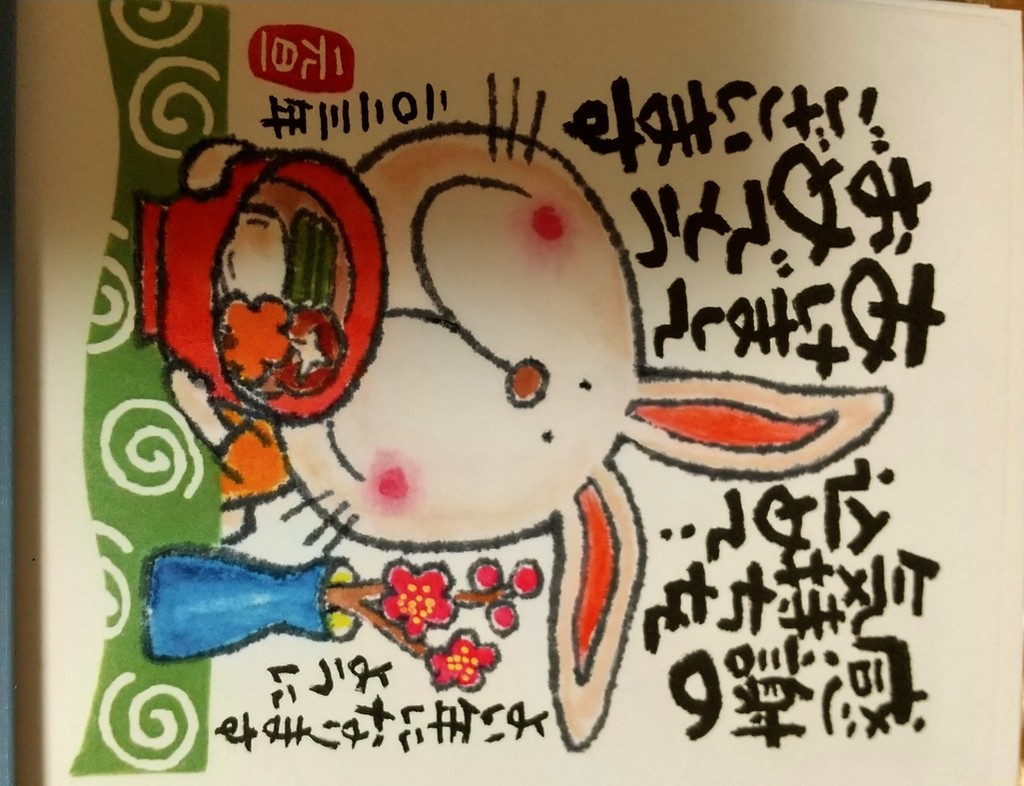 感謝の
気持ちを
込めて…
あけまして
おめでとう
ございます
よい年になります
ように
二〇二三年
元旦